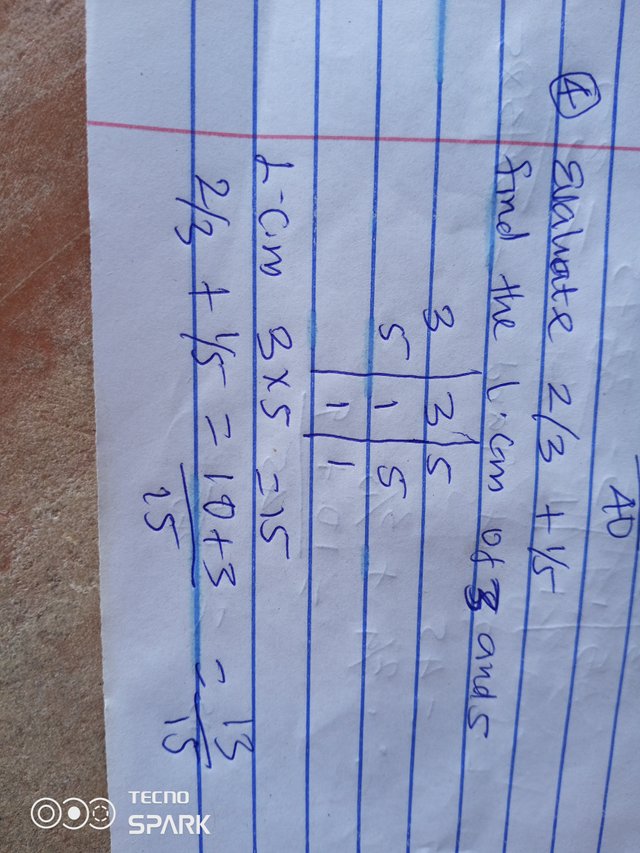 40
④ Evaluate 2/3 + 1/5
find the L.cm of 3 and 5
3 | 3 | 5
5 | 1 | 5
| 1 | 1
L-cm 3×5 =15
2/3 + 1/5 = 10+3 = 13
15 15
TECNO
SPARK